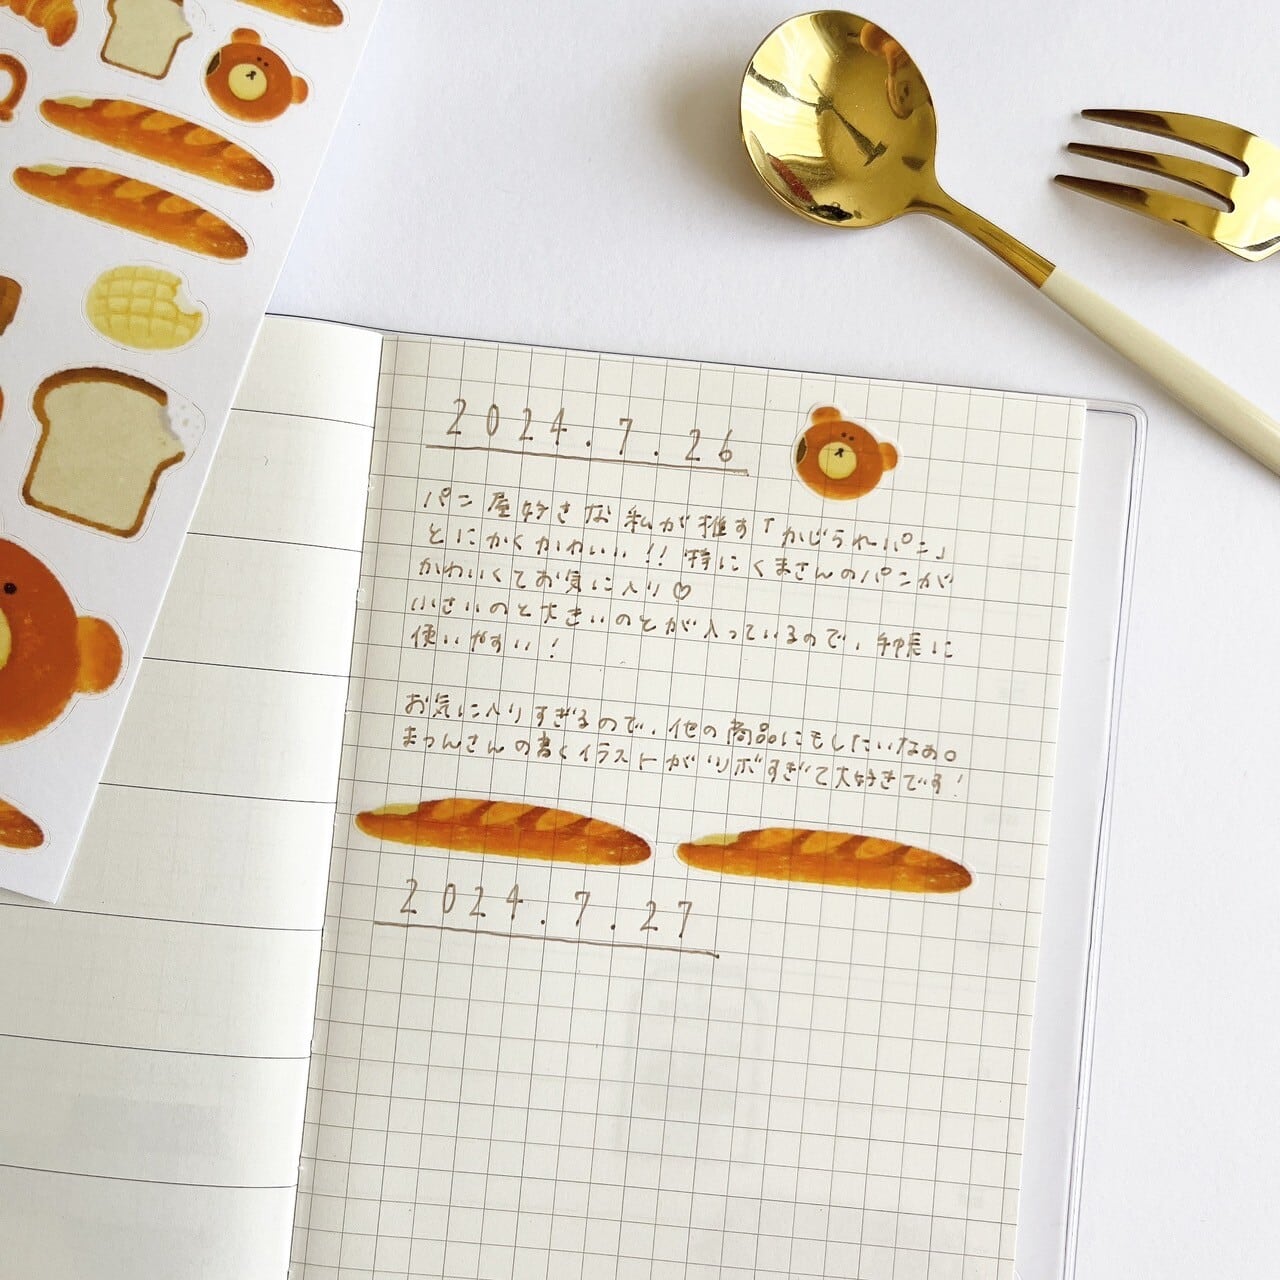 2024.7.26
パン屋好きな私が推す「かじられパン」
とにかくかわいい!! 特にくまさんのパンが
かわいくてお気に入り♡
小さいのと大きいのとが入っているので、手帳に
使いやすい!
お気に入りすぎるので、他の商品にもしたいなぁ。
まわんさんの書くイラストがツボすぎて大好きです!
2024.7.27